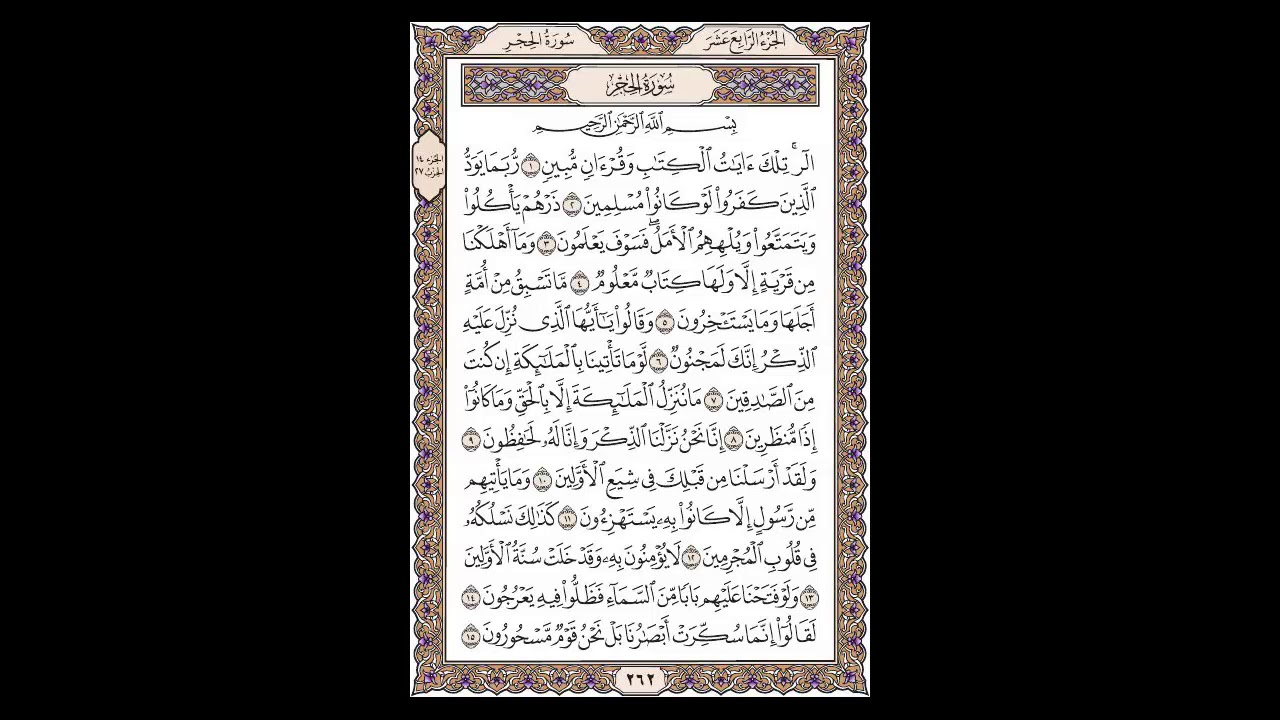 الجزء الرابع عشر
سورة الحجر
سورة الحجر
بِسْمِ ٱللَّهِ ٱلرَّحْمَٰنِ ٱلرَّحِيمِ
الجزء ١٤
الحزب ٢٧
الٓرۚ تِلْكَ ءَايَٰتُ ٱلْكِتَٰبِ وَقُرْءَانٍ مُّبِينٍ ١ رُّبَمَا يَوَدُّ
ٱلَّذِينَ كَفَرُوا۟ لَوْ كَانُوا۟ مُسْلِمِينَ ٢ ذَرْهُمْ يَأْكُلُوا۟
وَيَتَمَتَّعُوا۟ وَيُلْهِهِمُ ٱلْأَمَلُۖ فَسَوْفَ يَعْلَمُونَ ٣ وَمَآ أَهْلَكْنَا
مِن قَرْيَةٍ إِلَّا وَلَهَا كِتَابٌ مَّعْلُومٌ ٤ مَّا تَسْبِقُ مِنْ أُمَّةٍ
أَجَلَهَا وَمَا يَسْتَـْٔخِرُونَ ٥ وَقَالُوا۟ يَٰٓأَيُّهَا ٱلَّذِى نُزِّلَ عَلَيْهِ
ٱلذِّكْرُ إِنَّكَ لَمَجْنُونٌ ٦ لَّوْمَا تَأْتِينَا بِٱلْمَلَٰٓئِكَةِ إِن كُنتَ
مِنَ ٱلصَّٰدِقِينَ ٧ مَا نُنَزِّلُ ٱلْمَلَٰٓئِكَةَ إِلَّا بِٱلْحَقِّ وَمَا كَانُوٓا۟
إِذًا مُّنظَرِينَ ٨ إِنَّا نَحْنُ نَزَّلْنَا ٱلذِّكْرَ وَإِنَّا لَهُۥ لَحَٰفِظُونَ ٩
وَلَقَدْ أَرْسَلْنَا مِن قَبْلِكَ فِى شِيَعِ ٱلْأَوَّلِينَ ١٠ وَمَا يَأْتِيهِم
مِّن رَّسُولٍ إِلَّا كَانُوا۟ بِهِۦ يَسْتَهْزِءُونَ ١١ كَذَٰلِكَ نَسْلُكُهُۥ
فِى قُلُوبِ ٱلْمُجْرِمِينَ ١٢ لَا يُؤْمِنُونَ بِهِۦ وَقَدْ خَلَتْ سُنَّةُ ٱلْأَوَّلِينَ
١٣ وَلَوْ فَتَحْنَا عَلَيْهِم بَابًا مِّنَ ٱلسَّمَآءِ فَظَلُّوا۟ فِيهِ يَعْرُجُونَ ١٤
لَقَالُوٓا۟ إِنَّمَا سُكِّرَتْ أَبْصَٰرُنَا بَلْ نَحْنُ قَوْمٌ مَّسْحُورُونَ ١٥
٢٦٢